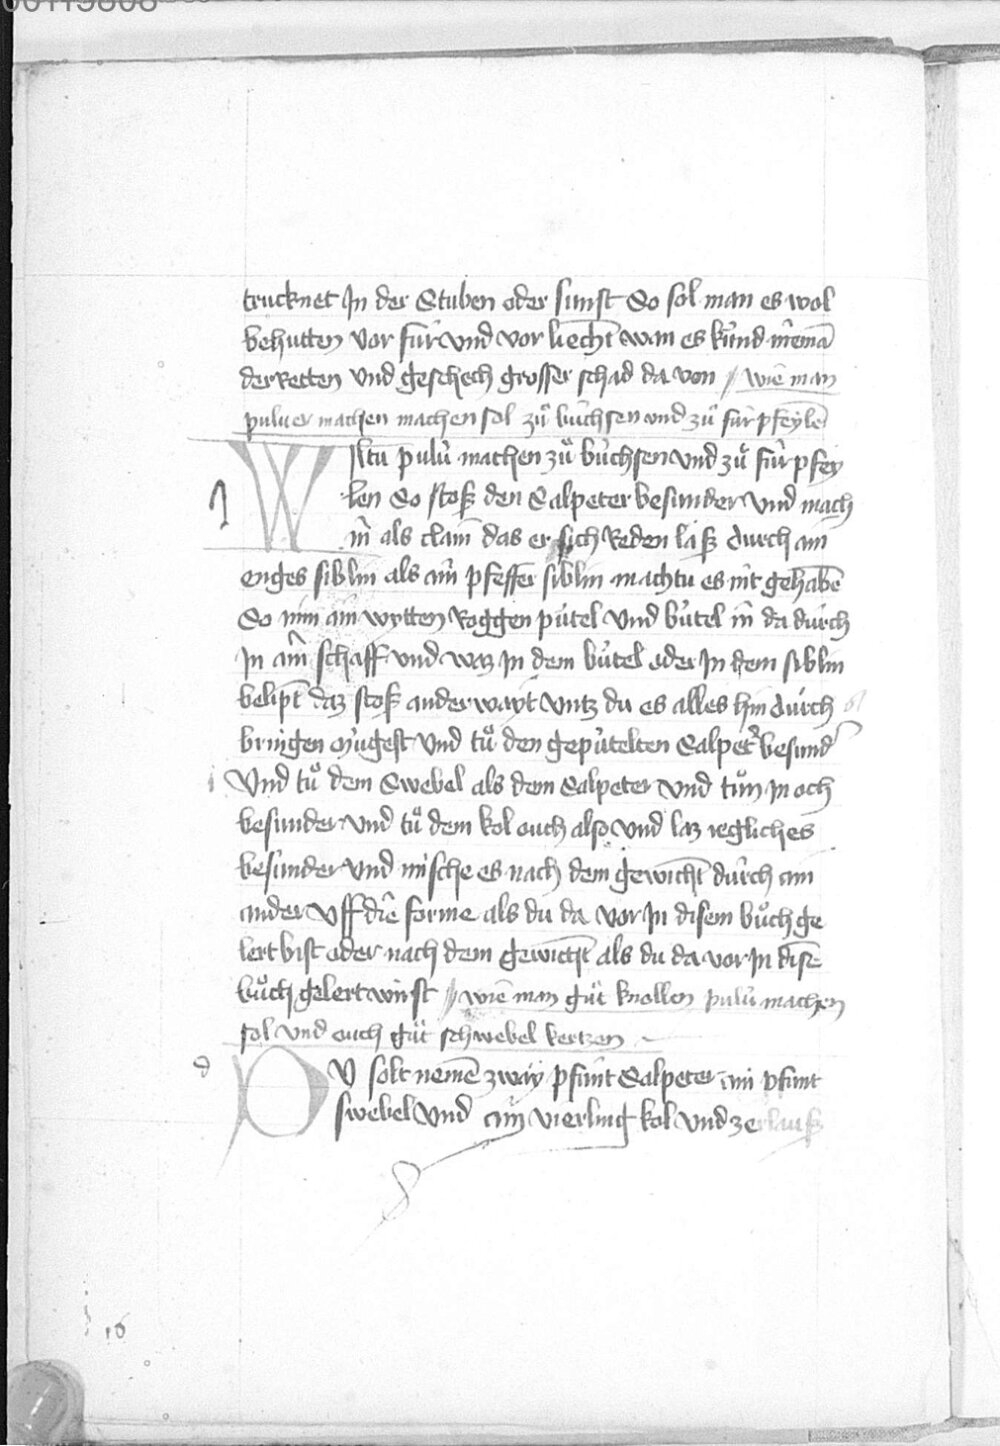 trucknet In der Stuben oder sunst So sol man es wol
behutten vor fúr vnd vor liecht wan es kúnd niemā
der Retten vnd geschech grosser schad da von wie man
puluer machen machen sol zů búchsen vnd zů fúr pfeylē
Wiltu pulū machen zů búchsen vnd zů fúr pfey
len So stoß den Salpeter besunder vnd mach
in als clain das er sich Reden laß durch ain
enges siblin als ain pfeffer siblin machtu es nit gehabē
So nim ain wytten Roggen pútel vnd bútel in da durch
In ain schaff vnd waz in dem bútel oder In dem siblin
belipt daz stoß ander wayt vntz du es alles hin durch
bringen múgest vnd tů den gepútelten Salpeter besund
Vnd tů dem Swebel als dem Salpeter vnd tůn in och
besunder vnd tů dem kol ouch also vnd laz iegliches
besunder vnd mische es nach dem gewicht durch ain
ander vff die forme als du da vor In disem bůch ge
lert bist oder nach dem gewicht als du da vor In disē
bůch gelert wirst wie man gůt knollen pulū machen
sol vnd ouch gůt schwebel kertzen
d
DV solt nemē zway pfunt Salpeter ain pfunt
swebel vnd ain vierling kol vnd zerlauß
16